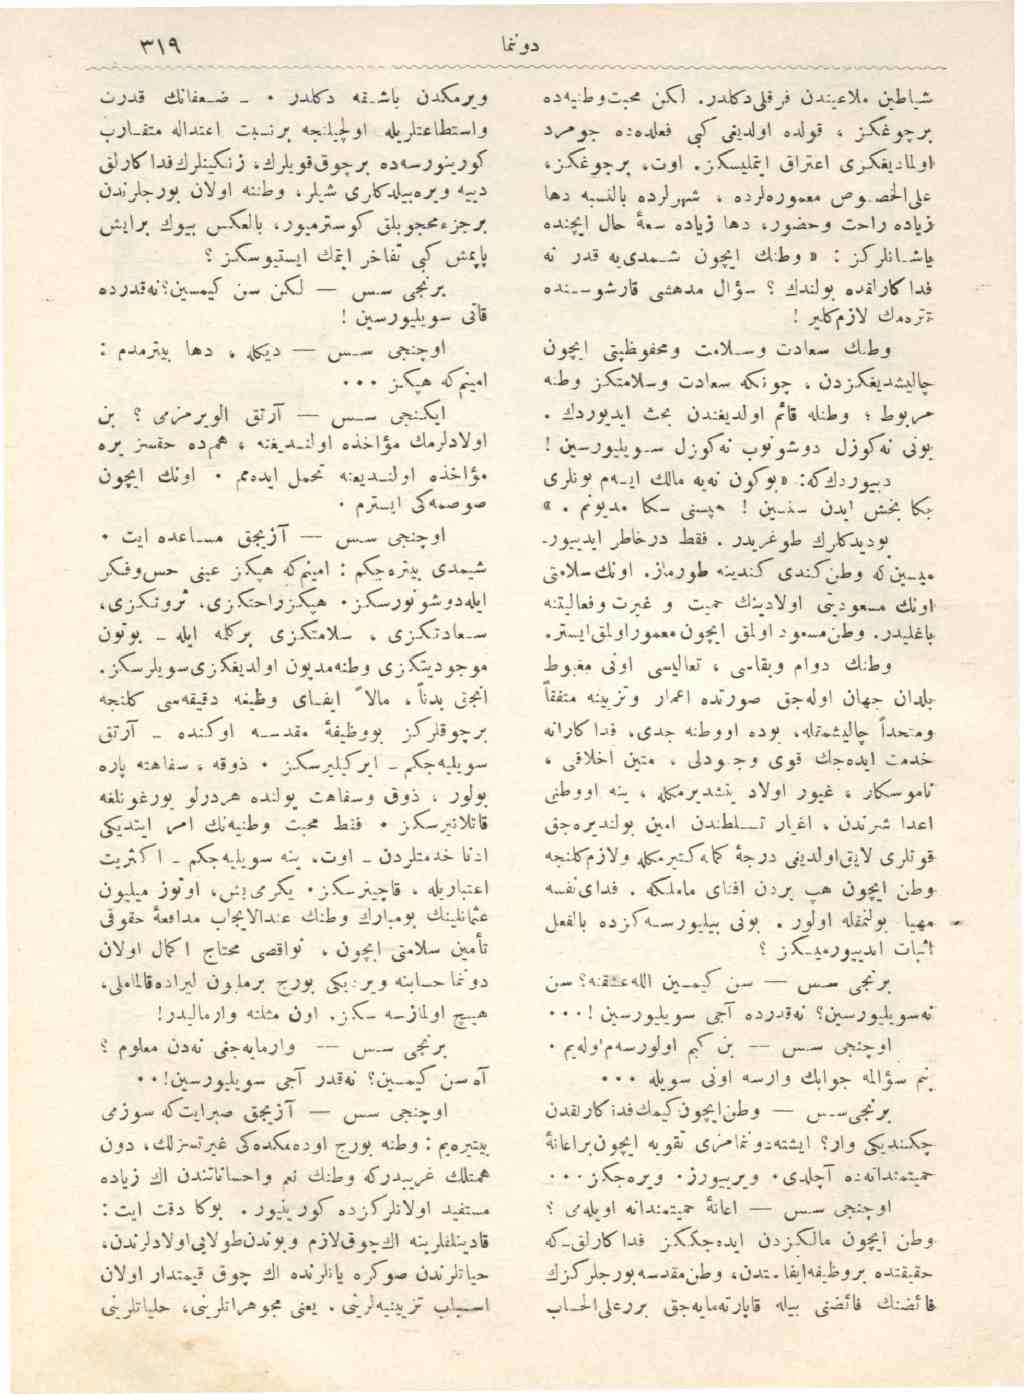 دوننما
٣١٩
شياطين ملاعيندن فرقلى دكلدر. لكن محبت وطنيه ده
برچوغكز ، قولده اولديغى كبى فعلده ده جومرد
اولماديغكزى اعتراق ايتمليسكز. اوت، برچوغكز،
على الخصوص معموره لرده ، شهرلرده بالنسبه دها
زياده راحت وحضور، دها زياده سعۀ حال ايچنده
ياشانلركز : « وطنك ايچون شمدى يه قدر نه
فداكارلقده بولندك ؟ سؤال مدهشى قارشوسنده
تتره مك لازم كلير !
وطنك سعادت وسلامت ومحفوظيتى ايچون
چاليشديغكزدن ، چونكه سعادت وسلامتكز وطنه
مربوط ؛ وطنله قائم اولديغندن بحث ايديوردك .
بونى نه كوزل دوشونوب نه كوزل سويليورسين !
ديبوردك كه: « بوكون نه يه مالك ايسه م بونلرى
بكا بخش ايدن سنسين ! هپسنى سكا مديونم . »
بوديدكلرك طوغريدر . فقط درخاطر ايدييور-
ميسين كه وطن كندى كندينه طورماز. اونك سلامتى
اونك مسعوديتى اولادينك حميت و غيرت وفعاليتنه
باغليدر. وطن مسعود اولمق ايچون معمور اولمق ايستر.
وطنك دوام وبقاسى ، تعاليسى اونى مغبوط
بلدان جهان اوله جق صورتده اعمار وتزيينه متفقاً
ومتحداً چاليشمقله، بوده اووطنه جدى، فداكارانه
خدمت ايده جك قوى وجودلى ، متين اخلاقى ،
ناموسكار ، غيور اولاد يتشديرمكله ، ينه اووطنى
اعدا شرندن ، اغيار تسلطندن امين بولنديره جق
قوتلرى لايق اولديغى درجۀ كماله كتيرمكله ولازم كلنجه
وطن ايچون هپ بردن افناى ماملكه . فداى نفسه
مهيا بولنمقله اولور . بونى بيليورسه كزده بالفعل
اثبات ايدييورميسكز ؟
برنجى سس — سن كيمسين الله عشقنه؟ سن
نه سويليورسين؟ نه قدرده آجى سويليورسين !...
اوچنجى سس — بن كيم اولورسه م اوله يم .
بنم سؤالمه جوابك وارسه اونى سويله ...
برنجى سس — وطن ايچون كيمك فداكارلقدن
چكنديكى وار؟ ايشته دوننمامزى تقويه ايچون براعانۀ
حميتمندانه ده آچلدى. ويرييورز. ويره جكز...
اوچنجى سس — اعانۀ حميتمندانه اويله مى ؟
وطن ايچون مالكزدن ايده جككز فداكارلق ـ كه
حقيقتده بروظيفه ايفاسيدن، وطن مقدسه بورجلركزك
فائضنك فائضنى بيله قاپارته مايه جق بررعلى الحساب
ويرمكدن باشقه دكلدر . ـ ضعفانك قدرت
واستطاعتلريله اولچيلنجه برنسبت اعتداله متقارب
كورينورسه ده برچوق قويلرك، زنكينلرك فداكارلق
دييه ويره بيلدكلرى شيلر، وطننه اولان بورجلرندن
برجزء محجوبلق كوسترميور، بالعكس بيوك برايش
ياپمش كبى تفاخر ايتمك ايستيوسكز ؟
برنجى سس — لكن سن كيمسين؟ نه قدرده
قاتى سويليورسين !
اوچنجى سس — ديكله ، دها بيترمدم :
امينم كه هپكز ...
ايكنجى سس — آرتق الويرمزمى ؟ بن
اولادلرمك مؤاخذه اولنديغنه ، هم ده حقسز يره
مؤاخذه اولنديغنه تحمل ايده مم . اونك ايچون
صوصمه كى ايسترم .
اوچنجى سس — آزيجق مساعده ايت .
شيمدى بيتره جكم : امينم كه هپكز عينى حس وفكر
ايله دوشونورسكز. هپكز راحتكزى، ثروتكزى،
سعادتكزى ، سلامتكزى بركله ايله ـ بوتون
موجوديتكزى وطنه مديون اولديغكزى سويلرسكز.
انجق بدناً ، مالاً ايفاى وظيفه دقيقه سى كلنجه
برچوقلركز بووظيفۀ مقدسه اوكنده ـ آرتق
سويليه جكم ـ ايركيلرسكز . ذوقه ، سفاهته پاره
بولور ، ذوق وسفاهت يولنده هردرلو يورغونلغه
قاتلانيرسكز . فقط محبت وطنيه نك امر ايتديكى
ادنا خدمتلردن ـ اوت، ينه سويليه جكم ـ اكثريت
اعتباريله ، قاچينرسكز. يكرمى بش، اوتوز ميليون
عثمانلينك بومبارك وطنك عندالايجاب مدافعۀ حقوقى
تأمين سلامتى ايچون ، نواقصى محتاج اكمال اولان
دوننما حسابنه ويرديكى بورج برمليون ليراده قالماملى،
هيچ اولمازسه سكز. اون مثلنه وارماليدر!
برنجى سس — وارمايه جغى نه دن معلوم ؟
آه سن كيمسين؟ نه قدر آجى سويليورسين!..
اوچنجى سس — آزيجق صبرايت كه سوزمى
بيتيره يم : وطنه بورج اوده مكده كى غيرتسزلك، دون
همتلك غريبدركه وطنك نعم واحساناتندن اك زياده
مستفيد اولانلركزده كورينيور. بوكا دقت ايت :
قادينلقلرينه اك چوق لازم وبوندن طولايى اولادلرندن،
حياتلرندن صوكره يانلرنده اك چوق قيمتدار اولان
اسباب تزيينيه لرينى . يعنى مجوهراتلرينى، حلياتلرينى